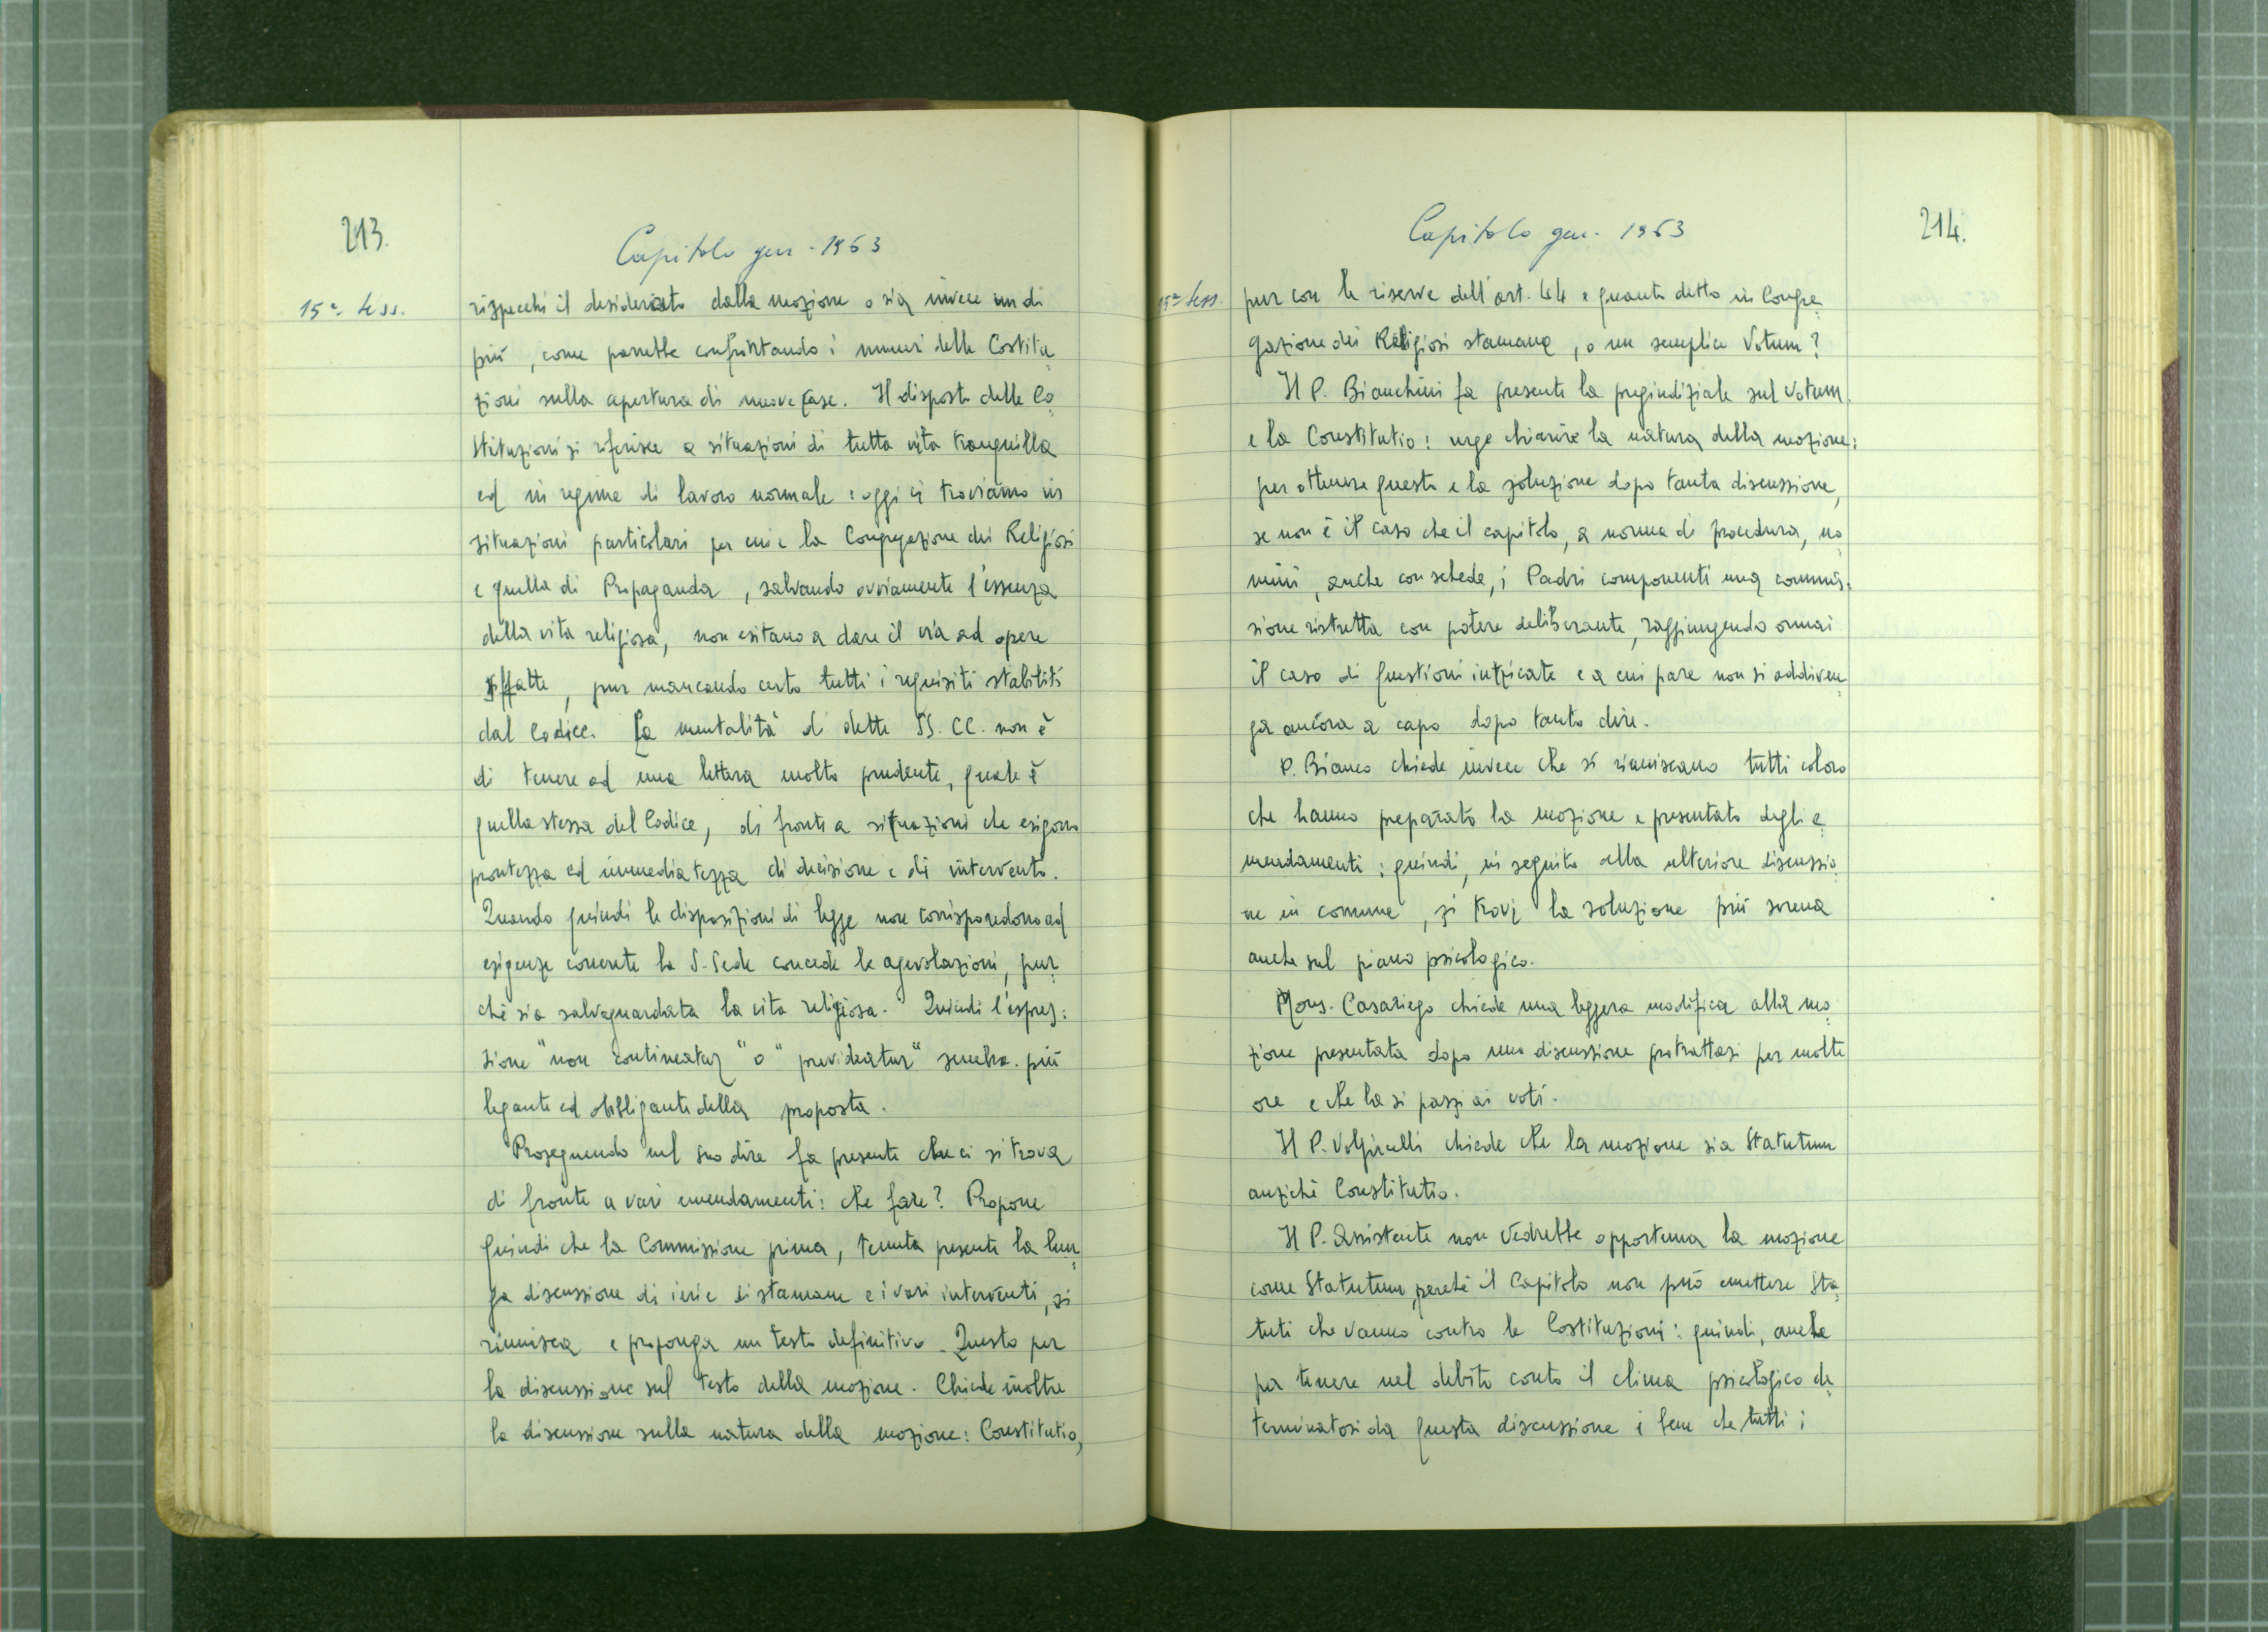 213.
Capitolo gen. 1963
15ª sess.
rispecchi il desideriato dalla mozione o sia invece un di
più, come parrebbe confrontando i numeri delle Costitu
zioni sulla apertura di nuove case. Il disposto delle Co
stituzioni si riferisce a situazioni di tutta vita tranquilla
ed in regime di lavoro normale: oggi ci troviamo in
situazioni particolari per cui e la Congregazione dei Religiosi
e quella di Propaganda, salvando ovviamente l'essenza
della vita religiosa, non esitano a dare il via ad opere
siffatte, pur mancando certo tutti i requisiti stabiliti
dal Codice. La mentalità di dette SS. CC. non è
di tenere ad una lettera molto prudente, quale è
quella stessa del Codice, di fronte a situazioni che esigono
prontezza ed immediatezza di decisione e di intervento.
Quando quindi le disposizioni di legge non corrispondono ad
esigenze concrete la S. Sede concede le agevolazioni, pur
chè sia salvaguardata la vita religiosa. Quindi l'espres:
sione "non contineatur" o "prevideatur" sembra più
legante ed obbligante della proposta.
Proseguendo nel suo dire fa presente che ci si trova
di fronte a vari emendamenti: che fare? Propone
quindi che la Commissione prima, tenuta presente la lun
ga discussione di ieri e di stamane e i vari interventi, si
riunisca e proponga un testo definitivo. Questo per
la discussione sul testo della mozione. Chiede inoltre
la discussione sulla natura della mozione: Constitutio,
Capitolo gen. 1963
214.
15ª sess.
pur con le riserve dell'art. 44 e quanto detto in Congre
gazione dei Religiosi stamane, o un semplice Votum?
Il P. Bianchini fa presente la pregiudiziale sul Votum
e la Constitutio: urge chiarire la natura della mozione:
per ottenere questo e la soluzione dopo tanta discussione,
se non è il caso che il capitolo, a norma di procedura, no
mini, anche con schede, i Padri componenti una commis:
sione ristretta con potere deliberante, raggiungendo ormai
il caso di questioni intricate e a cui pare non si addiven
ga ancora a capo dopo tanto dire.
P. Bianco chiede invece che si riuniscano tutti coloro
che hanno preparato la mozione e presentato degli e
mendamenti; quindi, in seguito alla ulteriore discussio
ne in comune, si trovi la soluzione più serena
anche sul piano psicologico.
Mons. Casariego chiede una leggera modifica alla mo
zione presentata dopo una discussione protrattasi per molte
ore e che la si passi ai voti.
Il P. Volpicelli chiede che la mozione sia Statutum
anzichè Constitutio.
Il P. Assistente non vedrebbe opportuna la mozione
come Statutum, perchè il Capitolo non può emettere Sta
tuti che vanno contro le Costituzioni: quindi, anche
per tenere nel debito conto il clima psicologico de
terminatosi da questa discussione è bene che tutti i